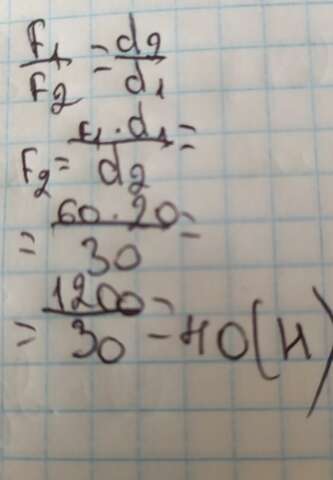 F₁/F₂ = d₂/d₁
F₂ = F₁·d₁/d₂ =
= 60·20/30 =
= 1200/30 = 40(Н)